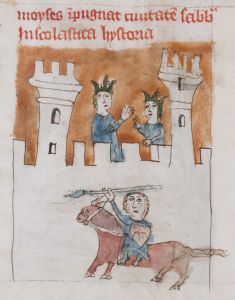 moyses īpugnat ciuitatē sabb
In scolastica hystoria